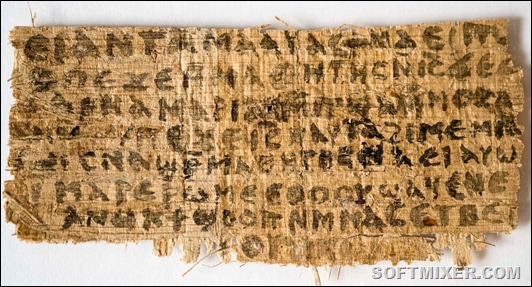 ⲉⲓ ⲁⲛ ⲧⲁⲙⲁⲁⲩ ⲁⲥϯ ⲛⲁⲉⲓ ⲡ
ⲡⲉϫⲉ ⲙⲙⲁⲑⲏⲧⲏⲥ ⲛⲓⲥ ϫⲉ ⲥ
ⲁⲣⲛⲁ ⲙⲁⲣⲓⲁⲙ ⲙⲡϣⲁ ⲙⲙⲟⲥ ⲁ
ⲡⲉϫⲉ ⲓⲥ ⲛⲁⲩ ⲧⲁϩⲓⲙⲉ ⲙⲛ
ⲥⲛⲁϣⲣⲙⲁⲑⲏⲧⲏⲥ ⲛⲁⲉⲓ ⲁⲩⲱ
ⲙⲁⲣⲉⲣⲱⲙⲉ ⲉⲑⲟⲟⲩ ϣⲁϥⲉ ⲛⲉ
ⲁⲛⲟⲕ ϯϣⲟⲟⲡ ⲛⲙⲙⲁⲥ ⲉⲧⲃⲉ
SOFTMIXER.COM